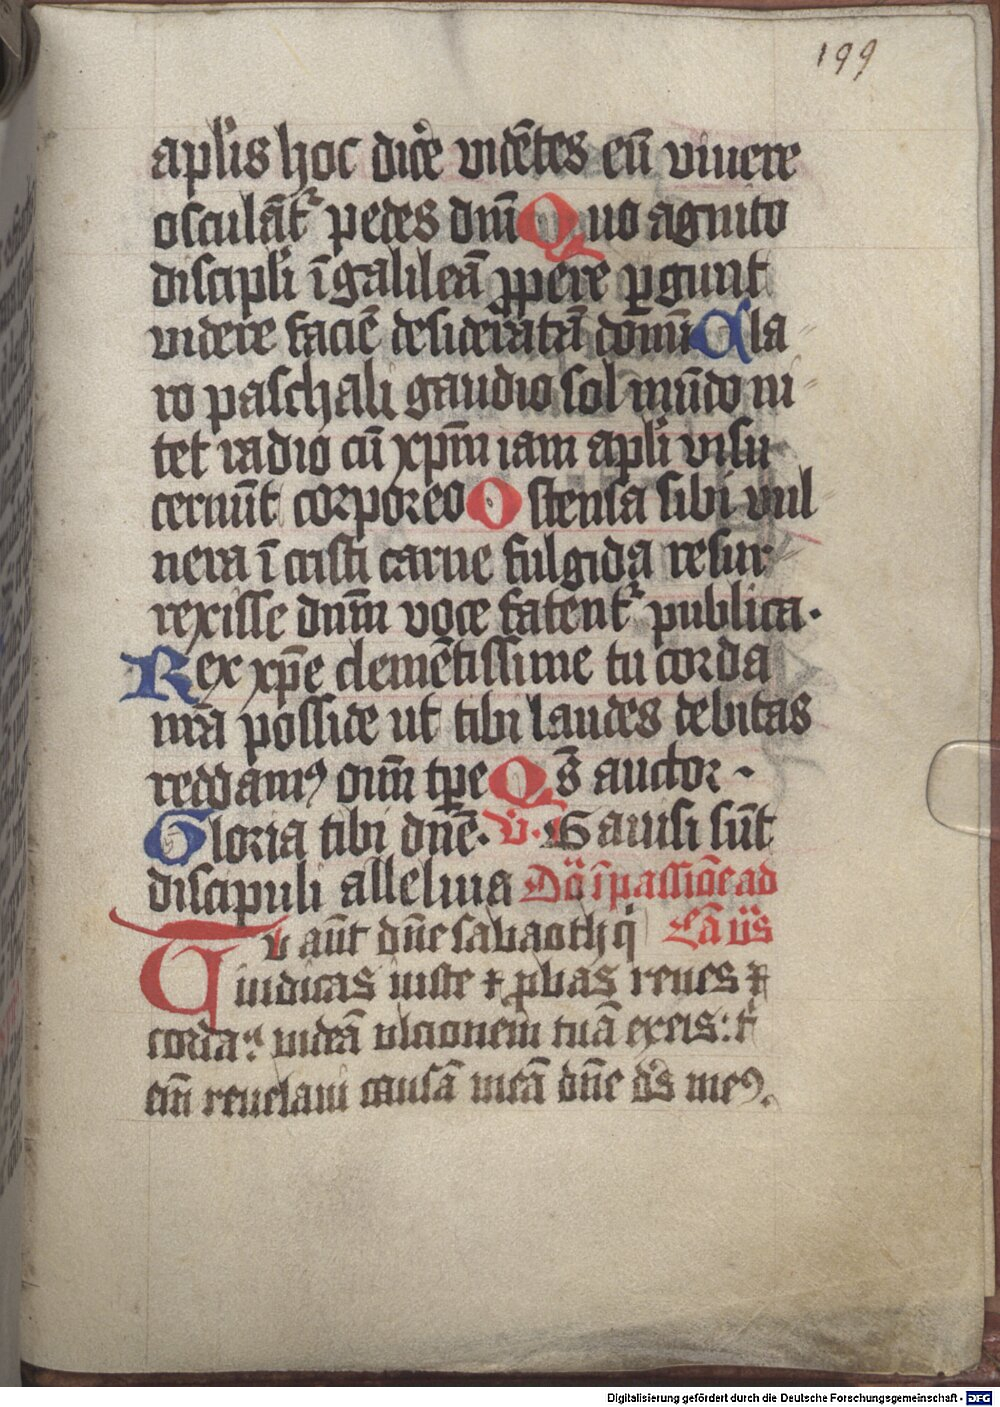 199
apl'is hoc dicẽ vidẽtes eũ viuere
osculãtᷣ pedes dnm̃ Quo agnito
discipl'i ĩ galileã ꝓpere ꝑgunt
videre faciẽ desideratã domĩ Cla
ro paschali gaudio sol mũdo ni
tet radio cũ xp̃m iam apl'i visu
cernũt corporeo Ostensa sibi vul
nera ĩ cristi carne fulgida resur
rexisse dnm̃ voce fatentᷣ publica.
Rex xp̃e clemẽtissime tu corda
nr̃a posside ut tibi laudes debitas
reddamꝰ oim̃ tp̃e Qs̃ auctor
Gloria tibi dñe. v̓. Gauisi sũt
discipuli alleluia Dõ ĩ passiõe ad
Tu aũt dñe sabaoth q̇ Lãu᷒s
iudicas iuste ⁊ ꝓbas renes ⁊
corda: videã vlcionem tuã ex eis: t'
eim̃ reuelaui causã meã dñe ds̃ meꝰ.
Digitalisierung gefördert durch die Deutsche Forschungsgemeinschaft - DFG